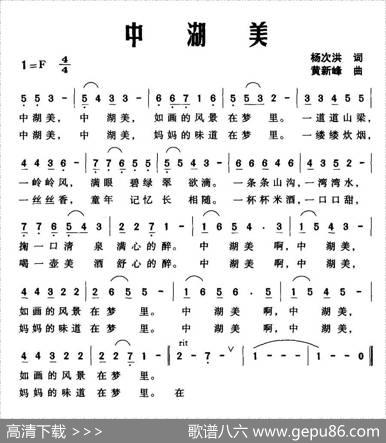 中 湖 美
1=F 4/4
杨次洪 词
黄新峰 曲
5 5 3 - | 5 4 3 3 - | 6 6 7 1 6 | 5 5 3 2 - | 3 3 3 2 1 2
中 湖 美, 中 湖 美, 如 画 的 风 景 在 梦 里。 一 道 道 山 梁,
中 湖 美, 中 湖 美, 妈 妈 的 味 道 在 梦 里。 一 缕 缕 炊 烟,
4 4 3 6 - | 7 7 6 5 5 | 7 7 6 5 - | 4 4 3 2 2 | 2 1 4 5 -
一 岭 岭 风, 满 眼 碧 绿 翠 欲 滴。 一 条 条 山 沟, 一 湾 湾 水,
一 丝 丝 香, 童 年 记 忆 长 相 随。 一 杯 杯 米 酒, 一 口 口 甜,
掬 一 口 清 泉 满 心 的 醉。 中 湖 美 啊, 中 湖 美,
喝 一 壶 美 酒 舒 心 的 醉。 中 湖 美 啊, 中 湖 美,
如 画 的 风 景 在 梦 里。 中 湖 美 啊, 中 湖 美,
妈 妈 的 味 道 在 梦 里。 中 湖 美 啊, 中 湖 美,
rit
如 画 的 风 景 在 梦 里。
妈 妈 的 味 道 在 梦 里。 在
高清下载 >>>> 歌谱八六 www.gepu86.com